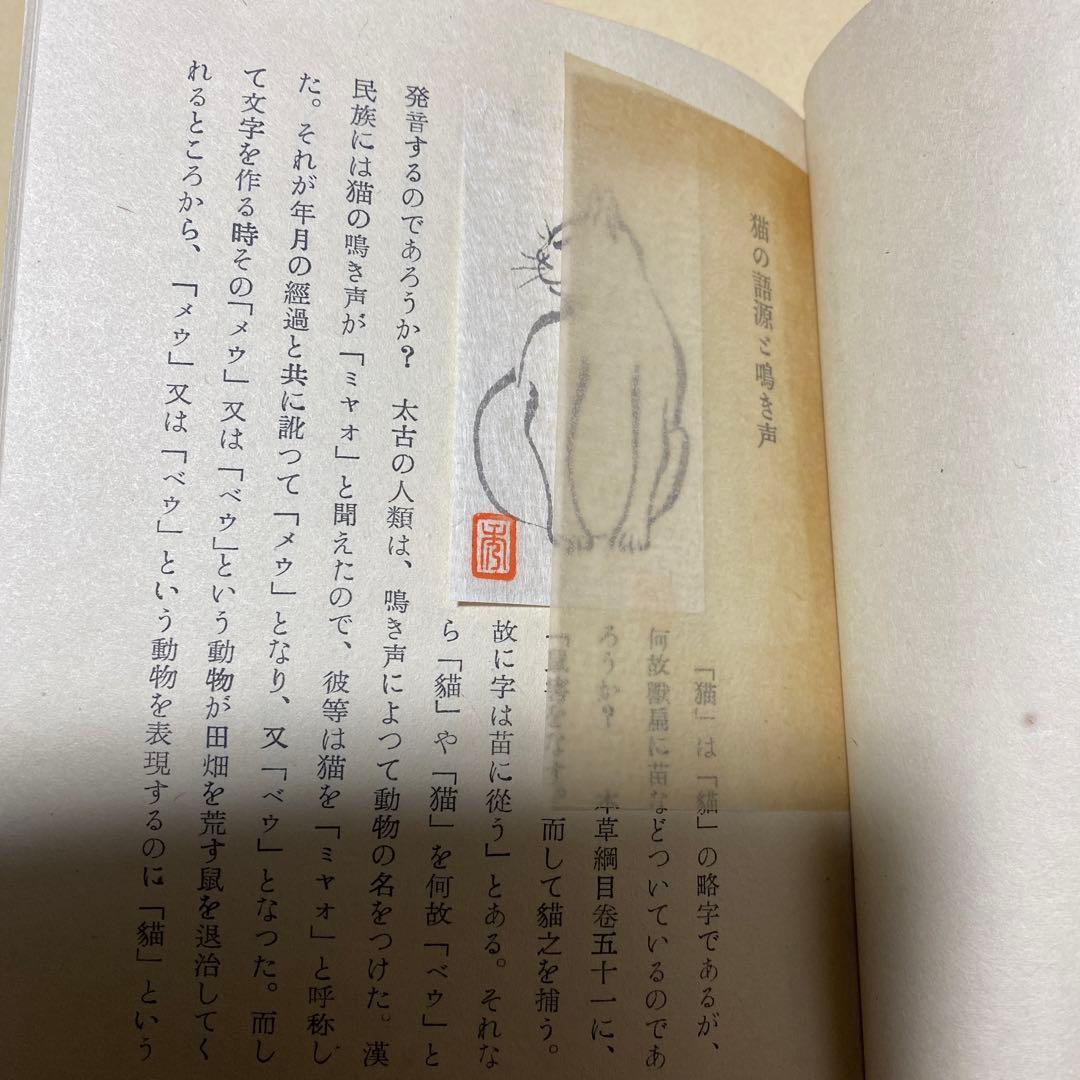 猫の語源と鳴き声
「猫」は「貓」の略字であるが、
何故獸扁に苗などついているのであ
ろうか？　本草綱目卷五十一に、
「鼠害をなす。而して貓之を捕う。
故に字は苗に從う」とある。それな
ら「貓」や「猫」を何故「ベゥ」と
発音するのであろうか？　太古の人類は、鳴き声によつて動物の名をつけた。漢
民族には猫の鳴き声が「ミャォ」と聞えたので、彼等は猫を「ミャォ」と呼称し
た。それが年月の經過と共に訛つて「メゥ」となり、又「ベゥ」となつた。而し
て文字を作る時その「メゥ」又は「ベゥ」という動物が田畑を荒す鼠を退治してく
れるところから、「メゥ」又は「ベゥ」という動物を表現するのに「貓」という